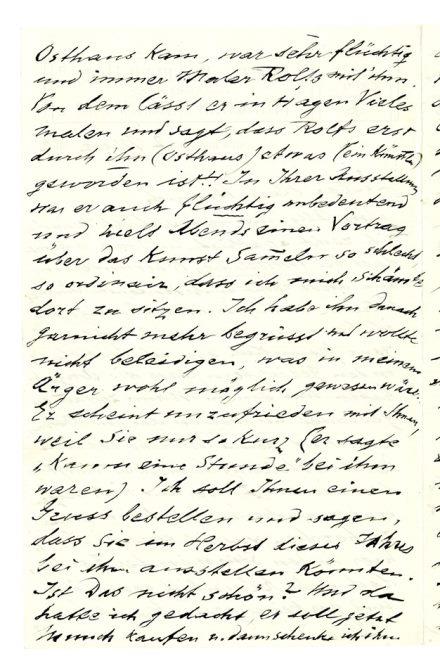 Osthaus kam, war sehr flüchtig
und immer Maler Rolfs mit ihm.
Von dem lässt er in Hagen Vieles
malen und sagt, dass Rolfs erst
durch ihn (Osthaus) etwas (ein Künstler)
geworden ist!! In Ihrer Ausstellung
war er auch flüchtig unbedeutend
und hielt Abends einen Vortrag
über das Kunst Sam̅eln so schlecht
so ordinair, dass ich mich schämte
dort zu sitzen. Ich habe ihn danach
garnicht mehr begrüsst und wollte
nicht beleidigen, was in meinem
Ärger wohl möglich gewesen wäre.
Er scheint unzufrieden mit Ihnen,
weil Sie nur so kurz (er sagte
„kaum eine Stunde" bei ihm
waren) Ich soll Ihnen einen
Gruss bestellen und sagen,
dass Sie im Herbst dieses Jahres
bei ihm ausstellen könnten.
Ist das nicht schön? Und da
hatte ich gedacht, er soll jetzt
kaufen u. dann schenke ich ihm